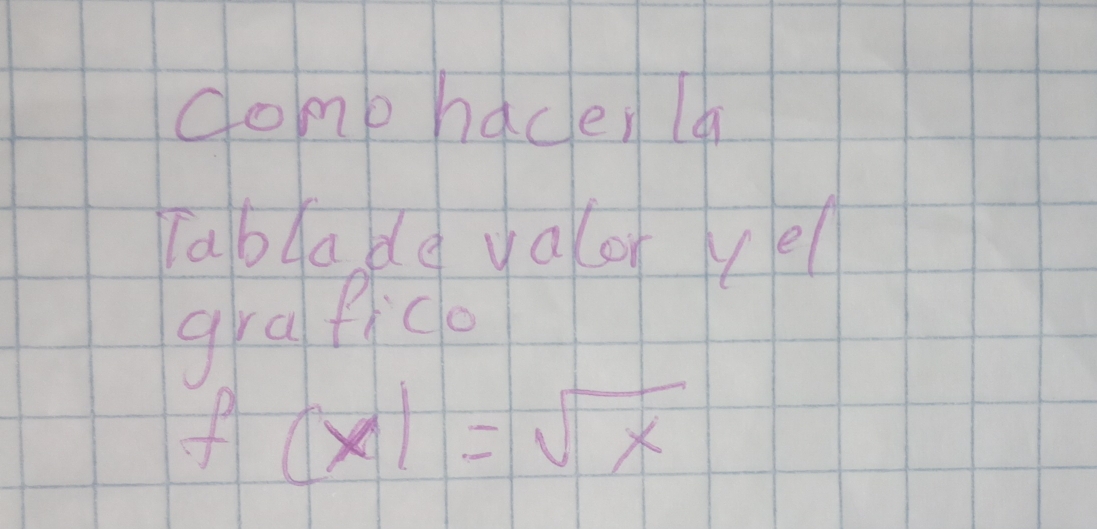 Como hacer la
Tabla de valor y el
grafico
f (x) = √x